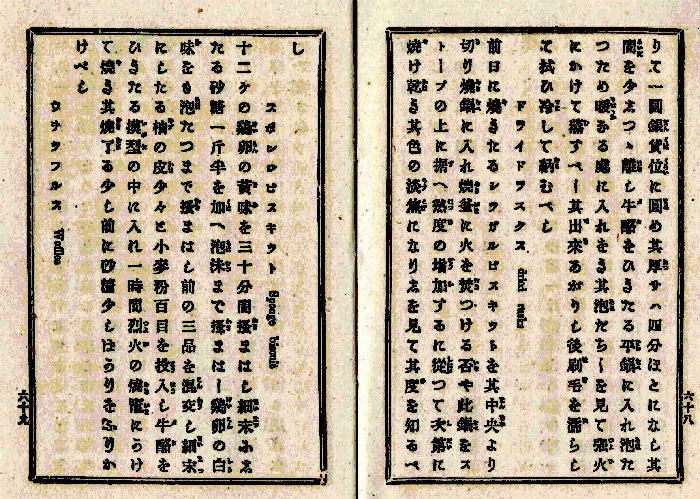 りて一圓銀貨位に固め其厚サハ四分ほとになし其
間を少しつゝ離し牛酪をひきたる平鍋に入れ泡た
つため暖かる處に入れをき其泡たちしを見て强火
にかけて蒸すべし其出來あがりし後刷毛を濡らし
て拭ひ冷して納むべし
ドライドラスクス
前日に燒きたるレヲガルビスキットを其中央より
切り燒鍋に入れ燒釜に火を焚つける否や此鍋をス
トーブの上に据へ熱度の增加するに從つて次第に
燒け乾き其色の淡燋になりしを見て其度を知るべ
六十八
し
スポンヂビスキット Sponge biscuit
十二ケの鷄卵の黃味を三十分間攪まはし細末ふしたる砂糖一斤半を加へ泡沫まで攪まはし鷄卵の白
味をも泡たつまで攪まはし前の三品を混交し細末
にしたる柚の皮少々と小麥粉百目を投入し牛酪を
ひきたる摸型の中に入れ一時間烈火の燒籠にうけ
て燒き其燒了る少し前に砂糖少しほうりをふりか
けべし
ウヲッフルス Waffles
六十九